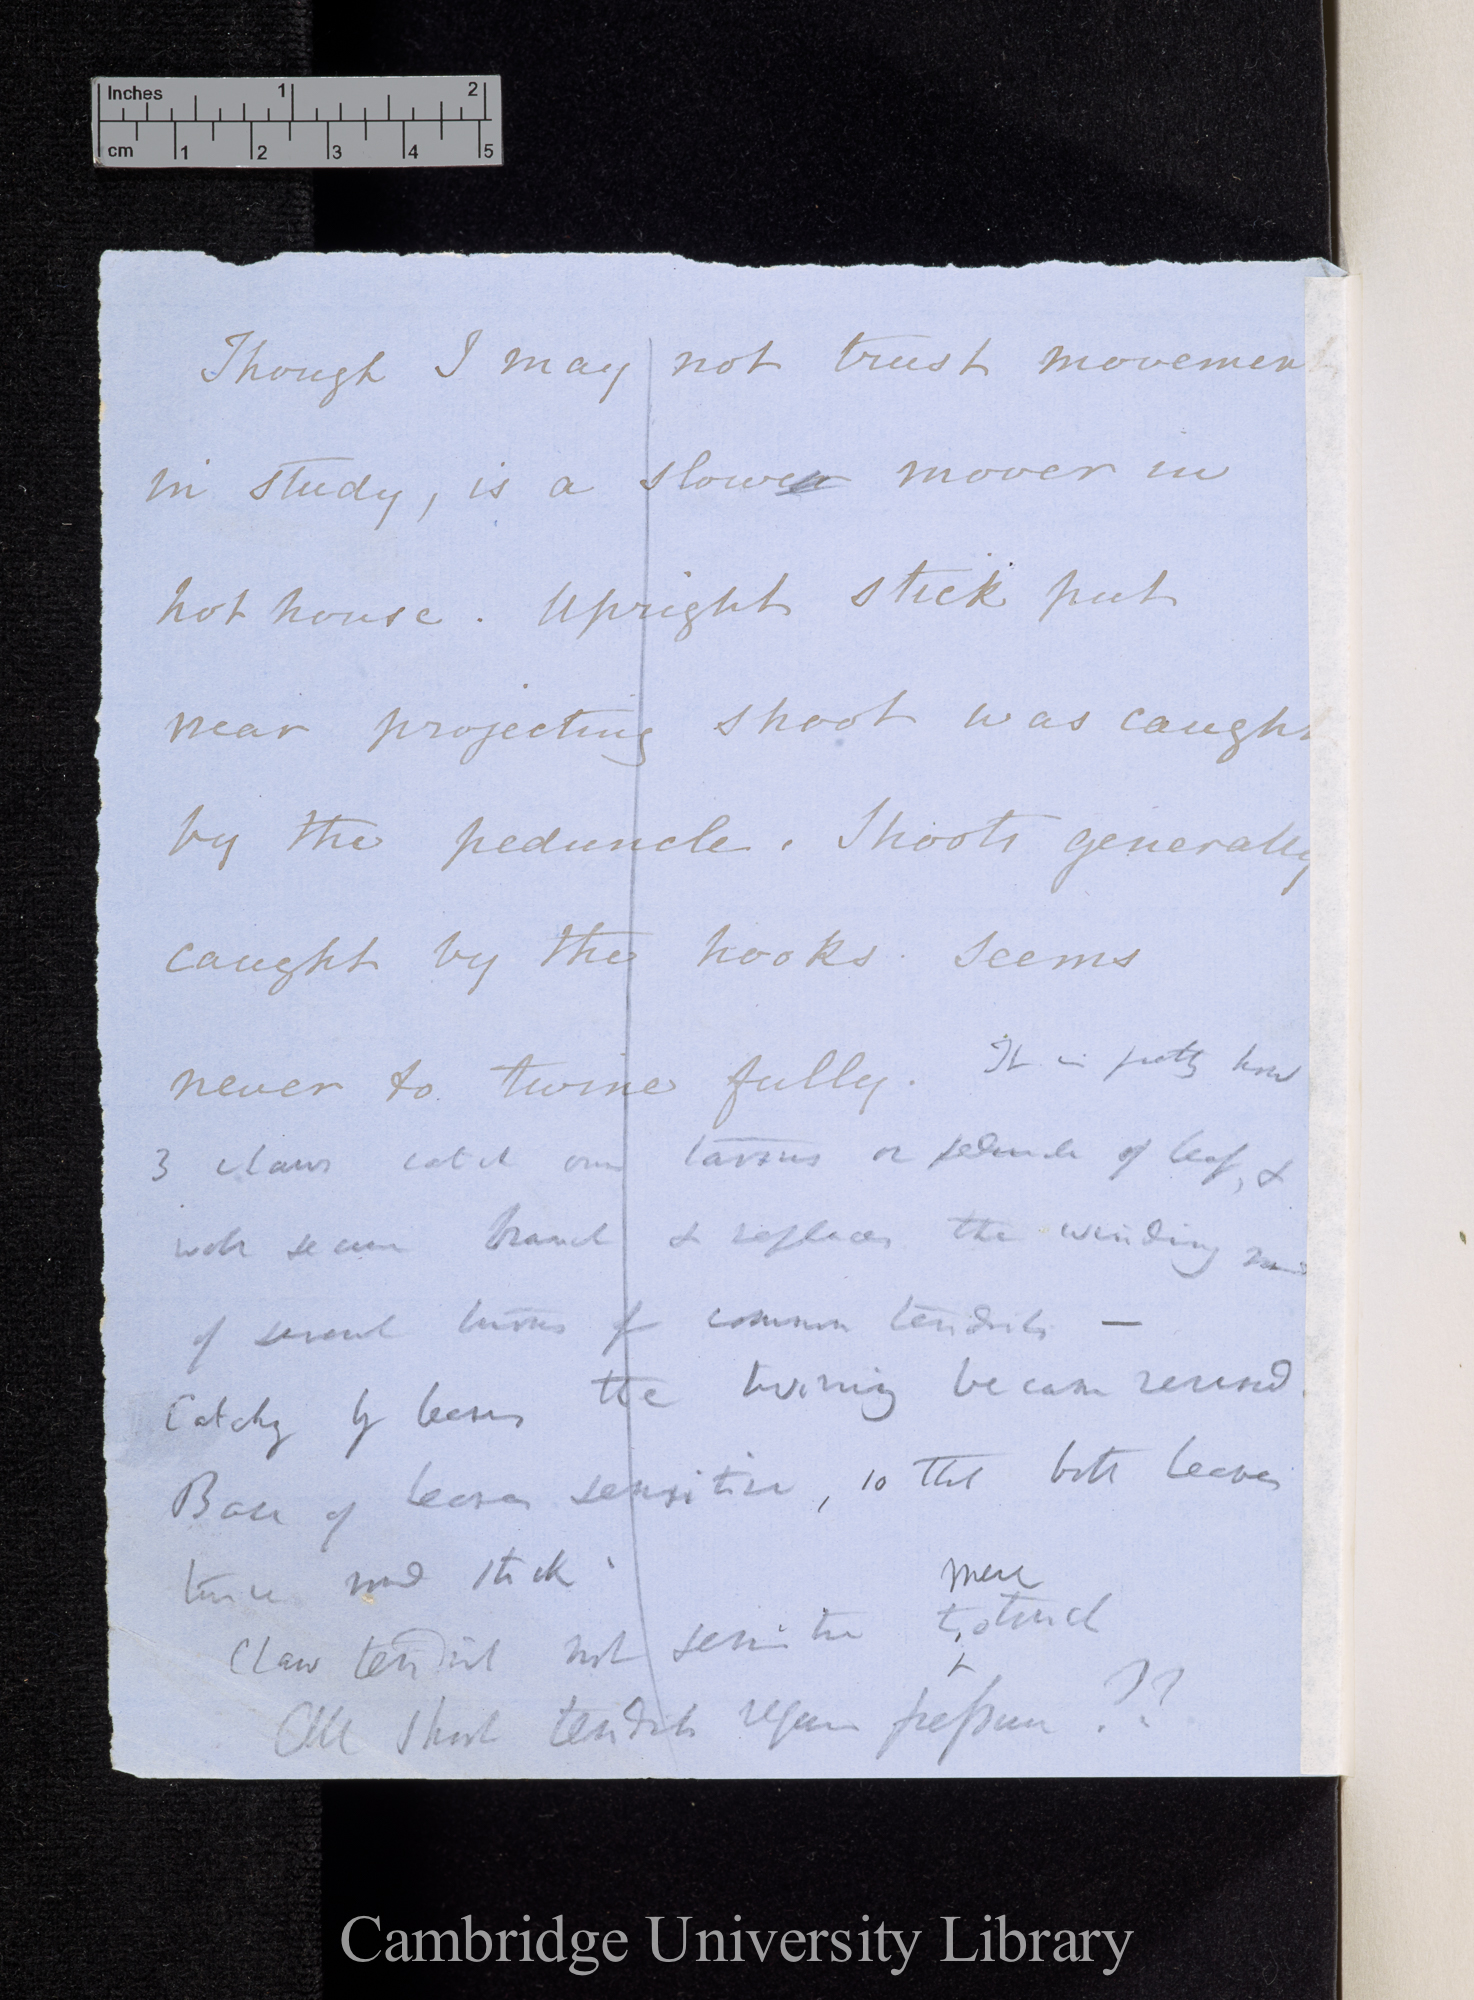 Inches 1 2
cm 1 2 3 4 5
Though I may not trust movement
in study, is a slower mover in
hot house. Upright stick put
near projecting shoot was caught
by the peduncle. Shoots generally
caught by the hooks. Seems
never to twine fully. It is pretty how
3 claws catch own tarsus or peduncle of leaf, &
branch & replaces the winding
of several turns of common tendrils —
Catchg by leaves the twining became reversed.
Base of leaves sensitive, so that both leaves
twice round stick.
mere
Claw tendril not sensitive to touch
All short tendrils require pressure ??
Cambridge University Library